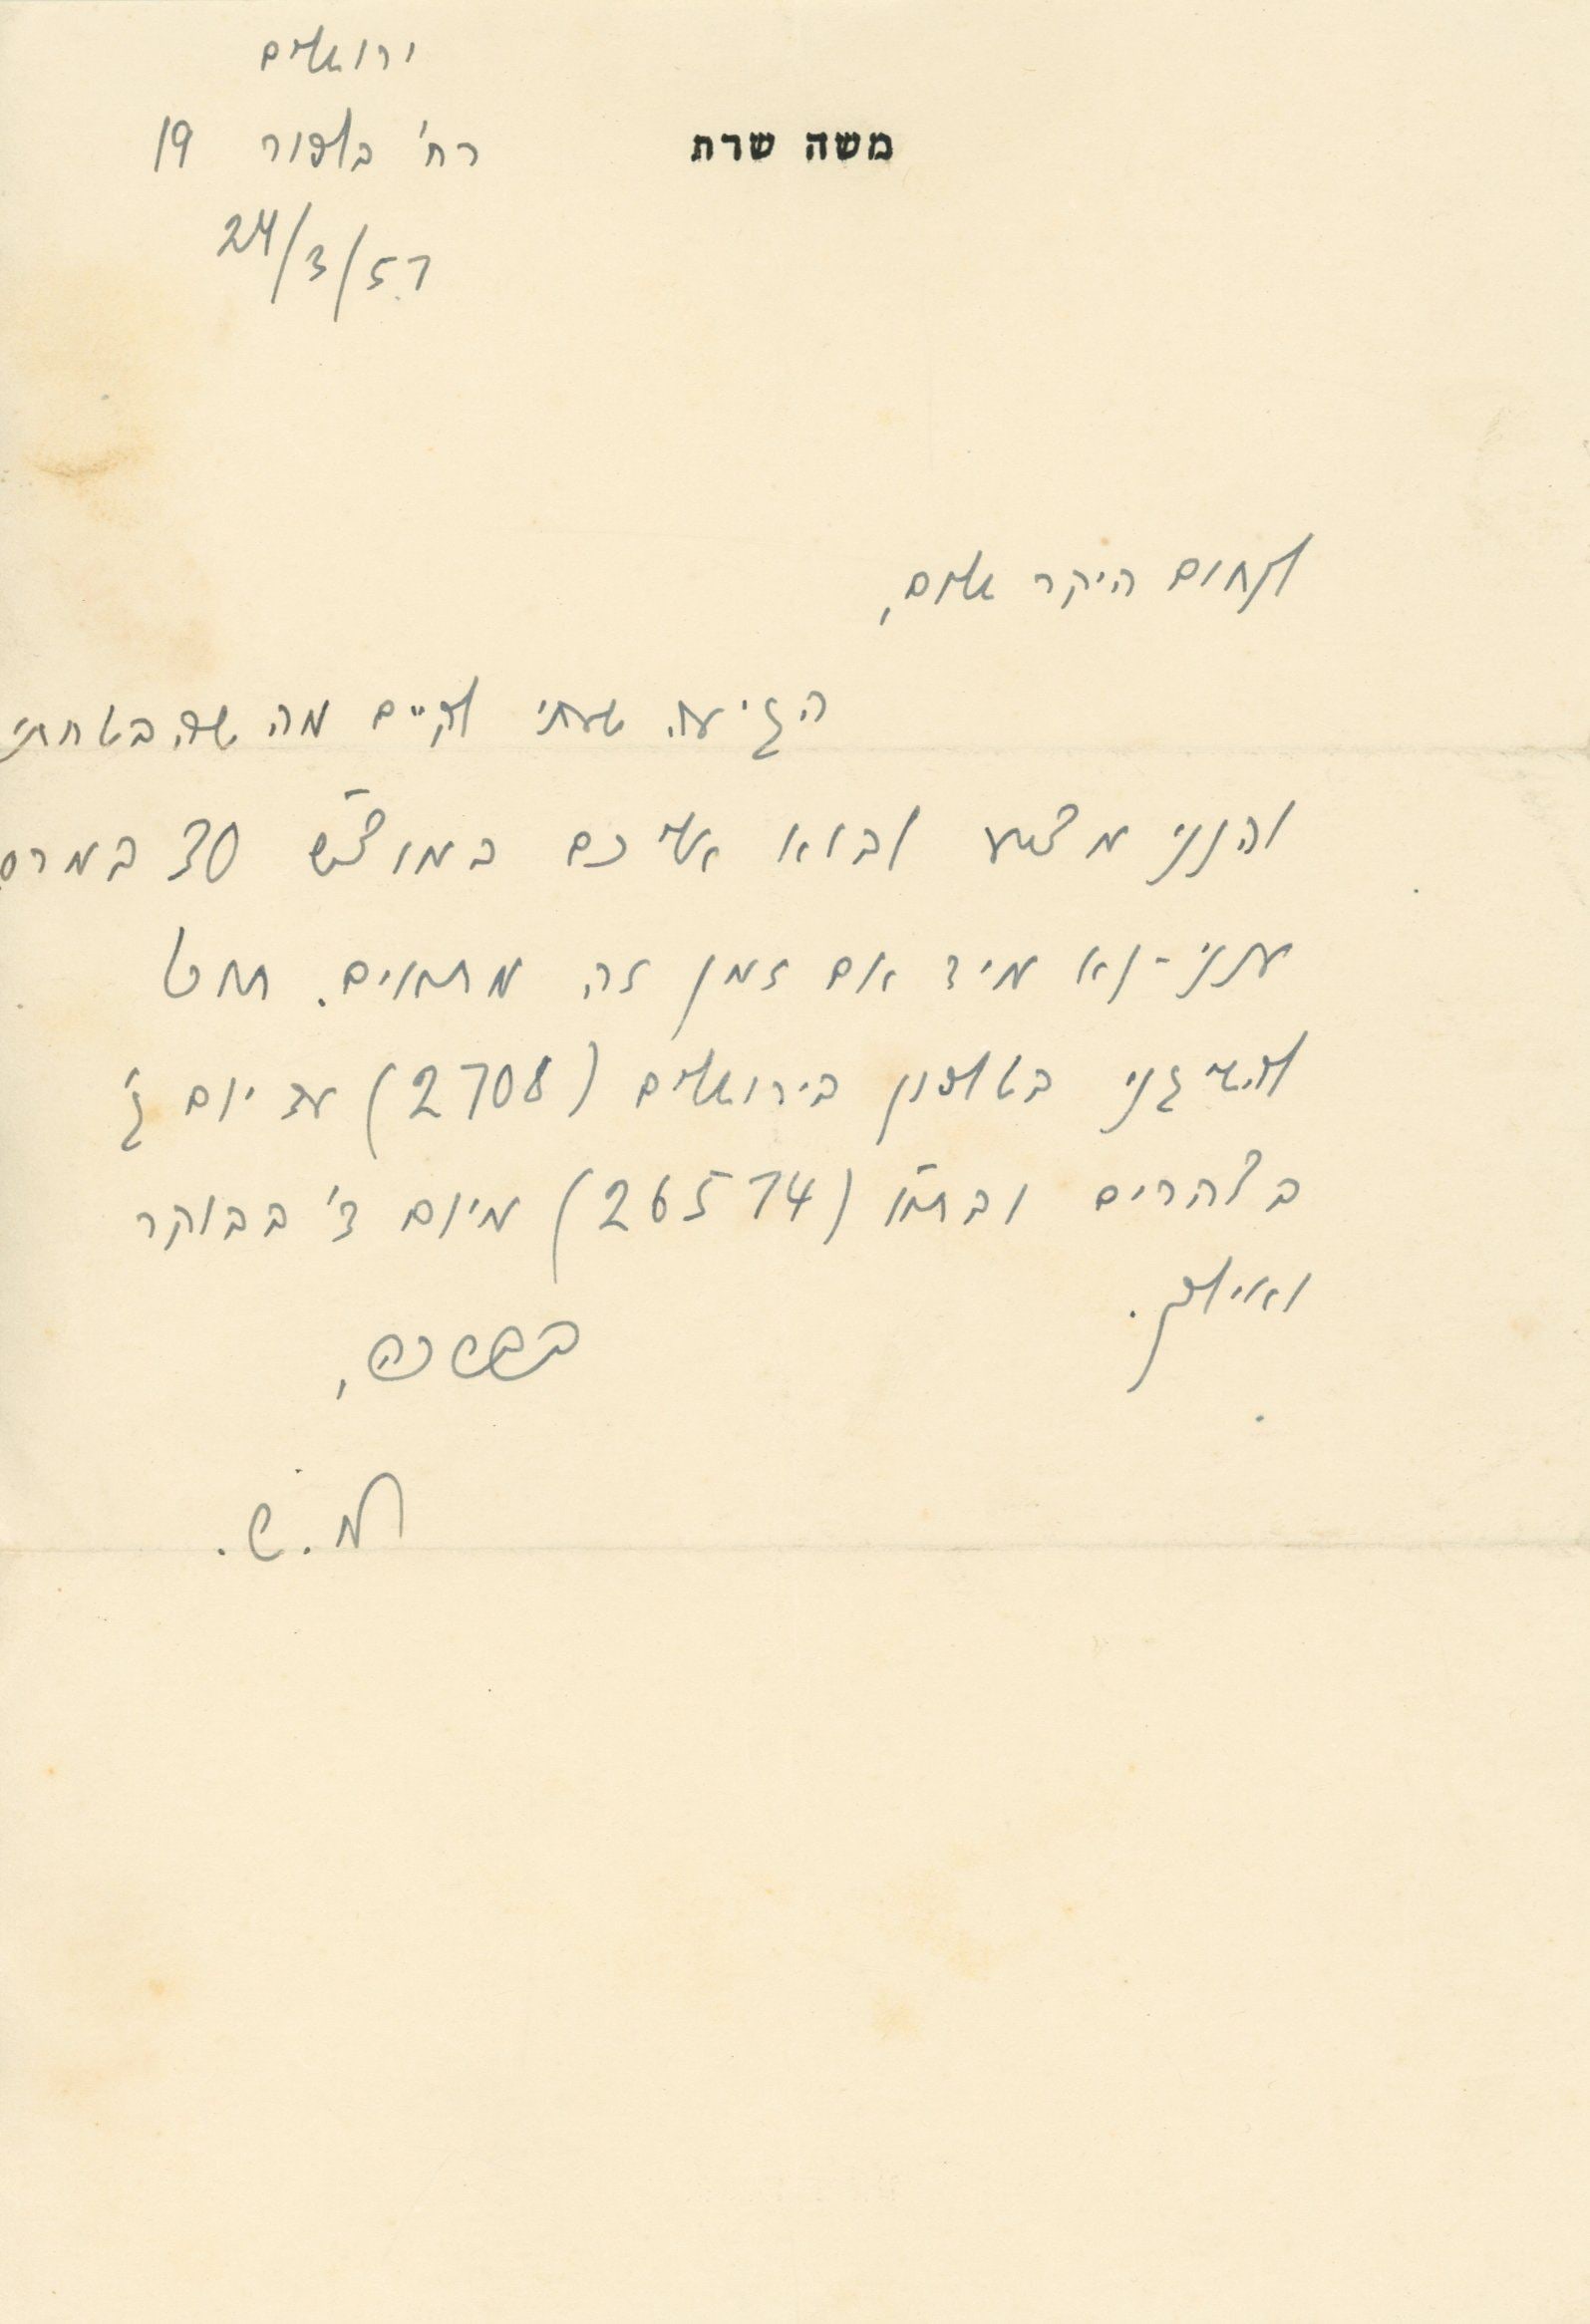 ירושלים
משה שרת
רח' בלפור 19
24/3/57
לנחום היקר שלום,
הגיעה שעתי לקיים מה שהבטחתי
והנני מציע לבוא אליכם במוצ"ש 30 במרס.
ענני-נא מיד אם זמן זה מתאים. תוכל
להשיגני בטלפון בירושלים (2708) עד יום ג'
בצהרים ובת"א (26574) מיום ד' בבוקר
ואילך.
בברכה,
מ.ש.